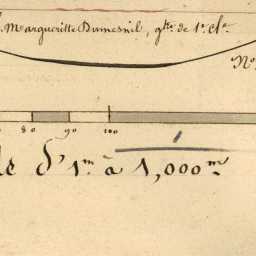 Margueritte Dumesnil, gte. de 1e. cle.
No
80 90 100
le d'1m. à 1,000m